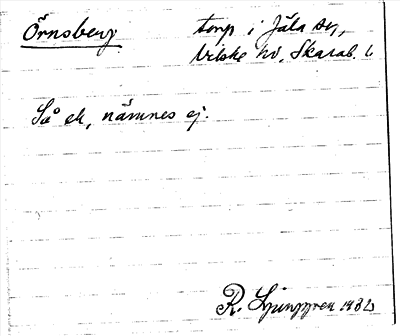 Örnsberg
torp i Jäla sn,
Vilske hd, Skarab. l
Så ek, nämnes ej.
R. Ljunggren 1932